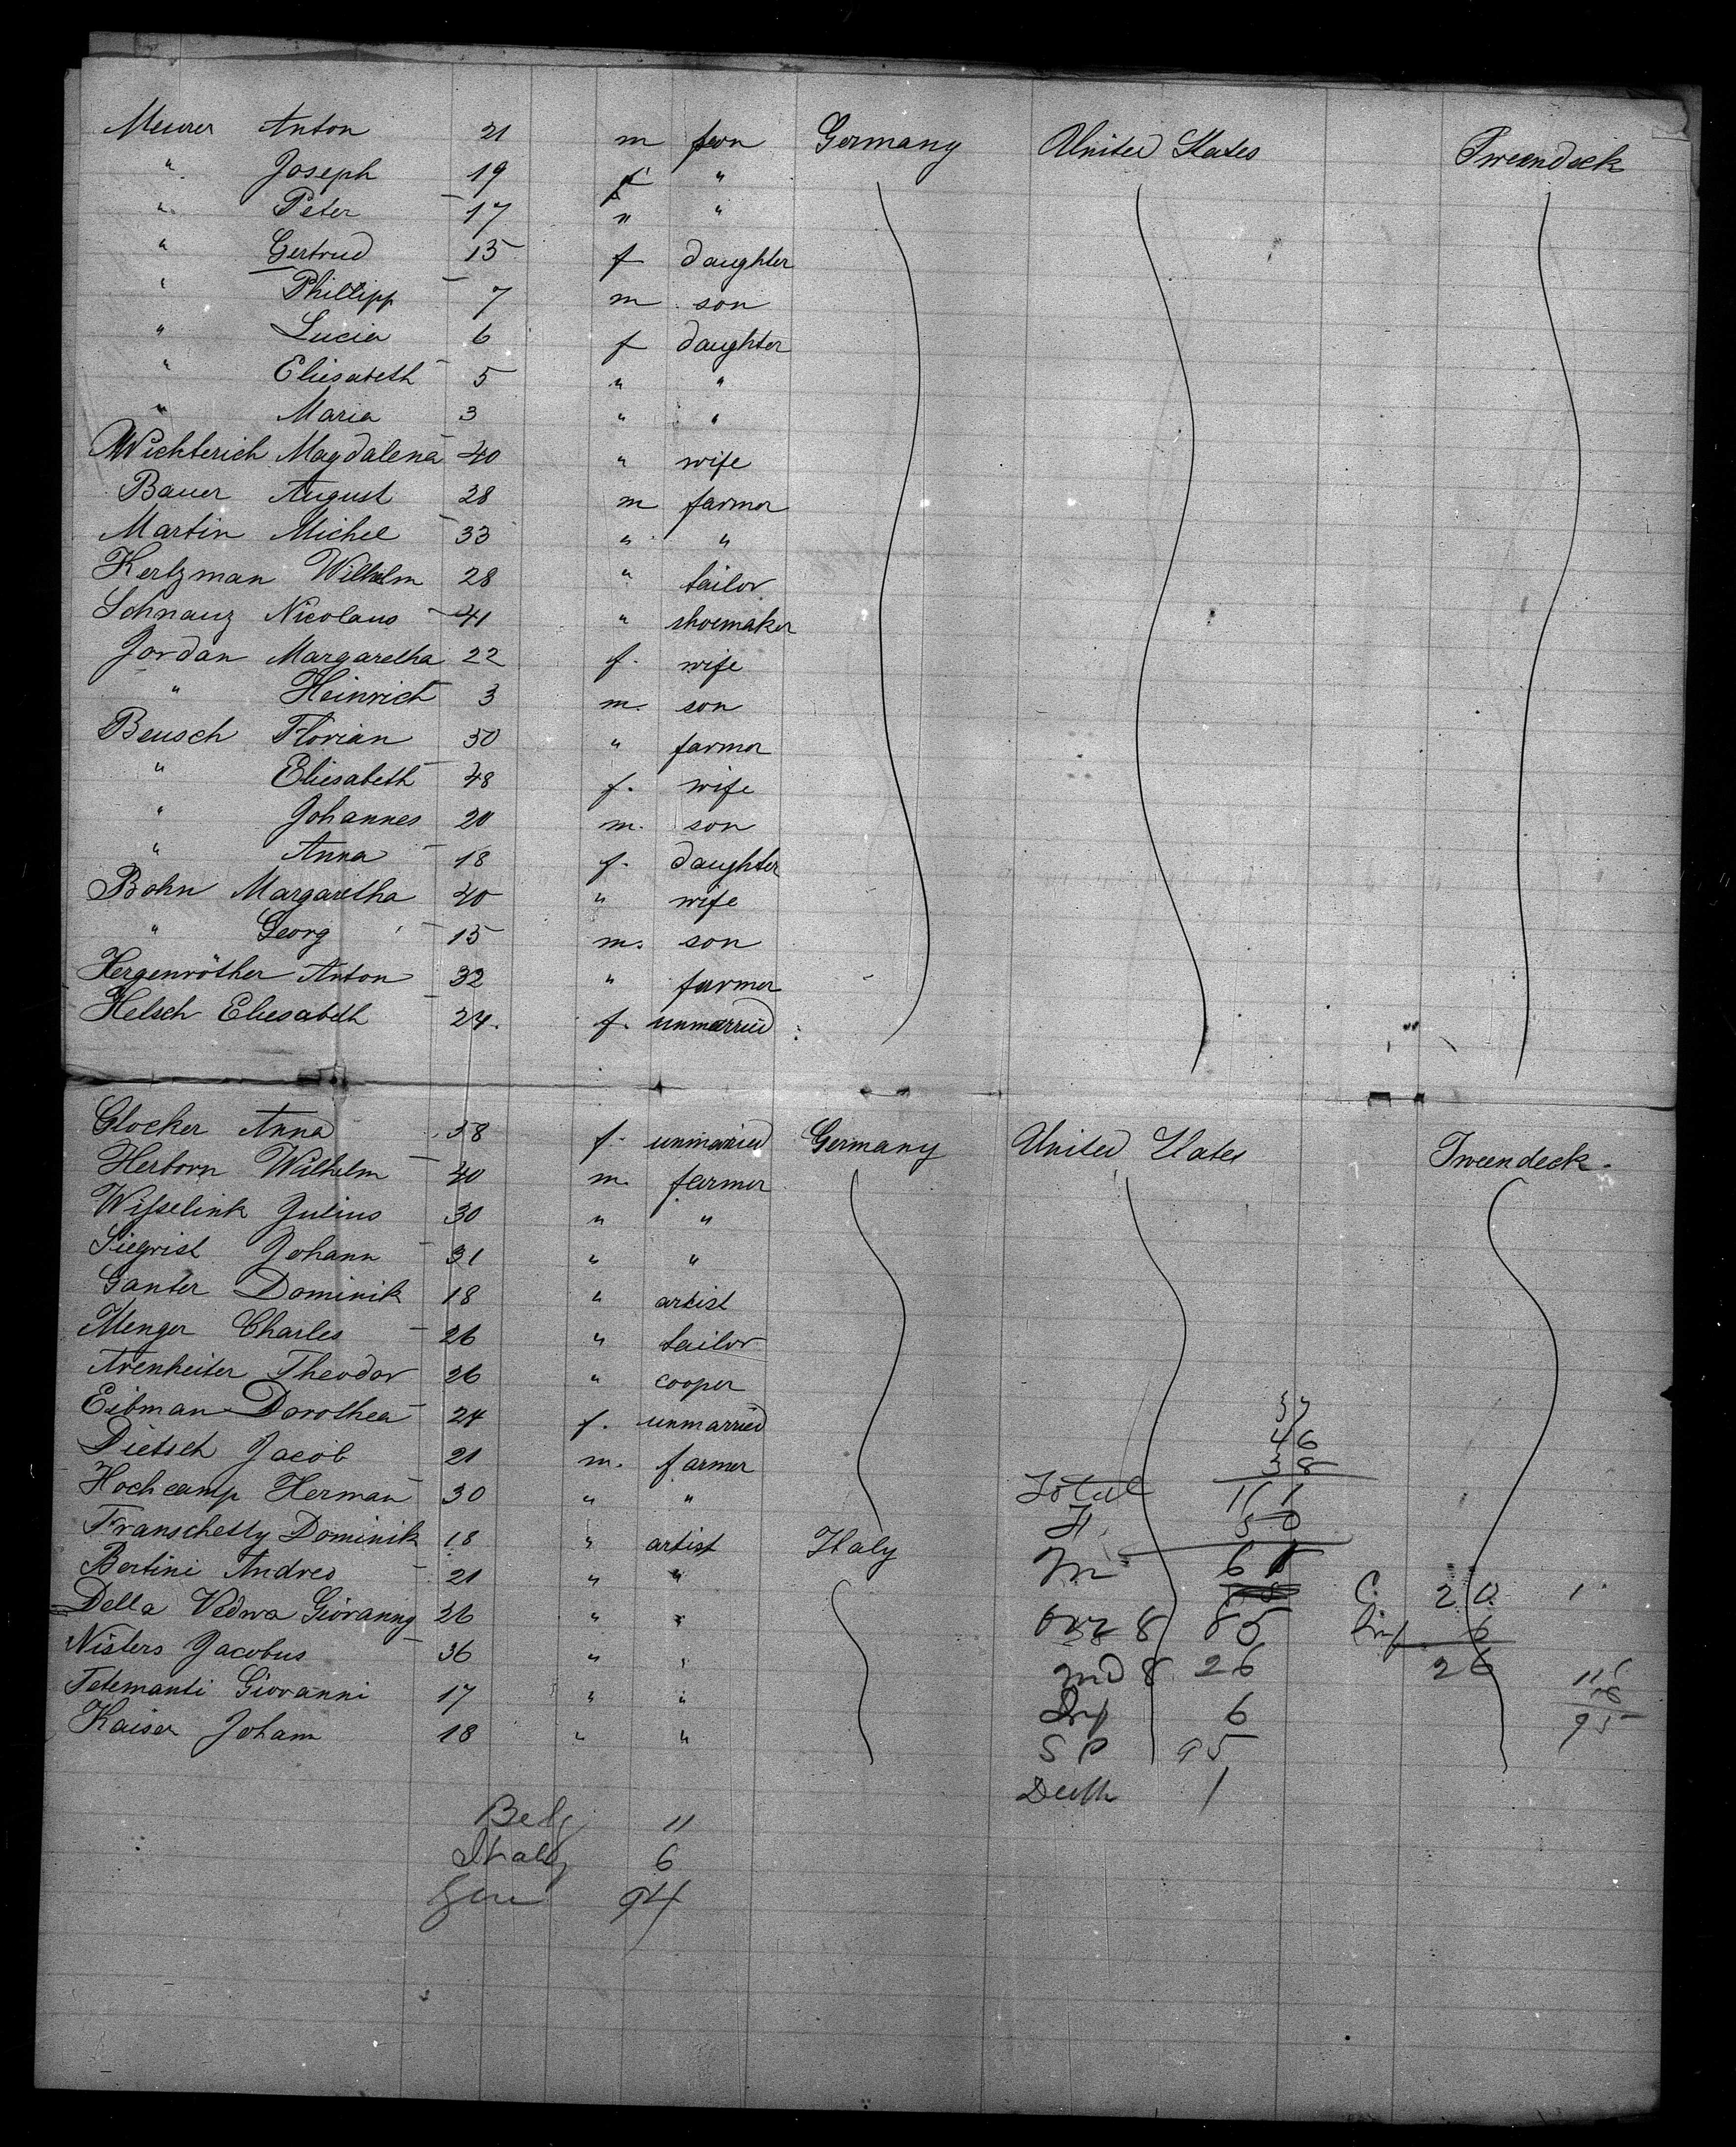 Meurer Anton 21 m son Germany United States Tweendeck
" Joseph 19 " "
" Peter 17 " "
" Gertrud 15 f daughter
" Phillipp 7 m son
" Lucia 6 f daughter
" Eliesabeth 5 " "
" Maria 3 " "
Wichterich Magdalena 40 " wife
Bauer August 28 m farmer
Martin Michel 33 " "
Kertzman Wilhelm 28 " tailor
Schnauz Nicolaus 41 " shoemaker
Jordan Margaretha 22 f. wife
" Heinrich 3 m. son
Beusch Florian 50 " farmer
" Eliesabeth 48 f. wife
" Johannes 20 m. son
" Anna 18 f. daughter
Bohn Margaretha 40 " wife
" Georg 15 m. son
Hergenröther Anton 32 " farmer
Helsch Eliesabeth 24. f. unmarried
Glocker Anna 38 f. unmarried Germany United States Tweendeck.
Herborn Wilhelm 40 m. farmer
Wisselink Julius 30 " "
Siegrist Johann 31 " "
Ganter Dominik 18 " artist
Menger Charles 26 " tailor
Arenheiter Theodor 26 " cooper
Eibman Dorothea 24 f. unmarried
37
46
Dietsch Jacob 21 m. farmer
38
Hochcamp Herman 30 " "
Total 111
Franschetty Dominik 18 " artist Italy
F. 50
Bertini Andreo 21 " "
m 61
C. 20 1
Della Vedwa Giovanny 26 " "
over 8 85
6
Nisters Jacobus 36 " "
und 8 26
26
Tetemanti Giovanni 17 " "
6
95
Kaiser Johann 18 " "
S P 95
Death 1
Belg 11
Italy 6
Ger 94